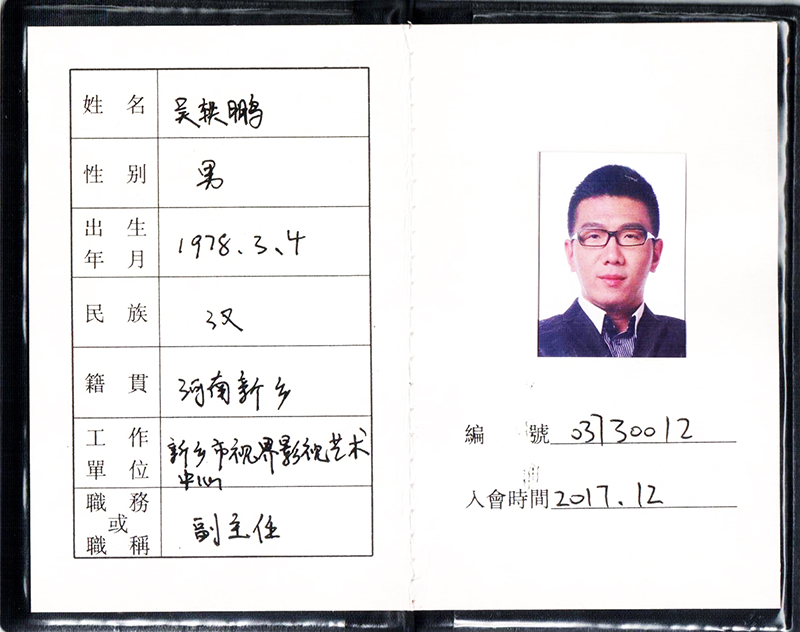 姓 名 吴轶鹏
性 别 男
出 生
年 月 1978.3.4
民 族 汉
籍 貫 河南新乡
工 作
單 位 新乡市视界影视艺术
中心
職 務
或
職 稱 副主任
编 號 03730012
入會時間 2017.12